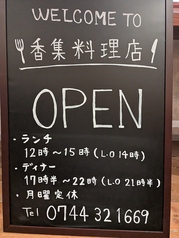 WELCOME TO
香集料理店
OPEN
・ランチ
12時〜15時(L.O 14時)
・ディナー
17時半〜22時(L.O 21時半)
・月曜定休
Tel 0744 32 1669